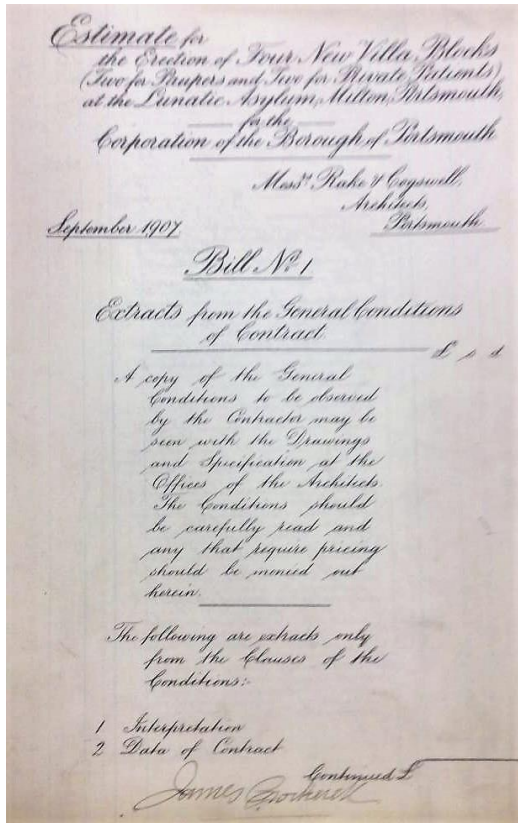 Estimate for
the Erection of Four New Villa Blocks
(Two for Paupers and Two for Private Patients)
at the Lunatic Asylum, Milton, Portsmouth,
for the
Corporation of the Borough of Portsmouth
Messrs Rake & Cogswell,
Architects,
Portsmouth
September 1907
Bill No 1
Extracts from the General Conditions
of Contract.
£ s d
A copy of the General
Conditions to be observed
by the Contractor may be
seen with the Drawings
and Specification at the
Offices of the Architects.
The Conditions should
be carefully read and
any that require pricing
should be monied out
herein.
The following are extracts only
from the Clauses of the
Conditions:-
1 Interpretation
2 Data of Contract
Continued £
James